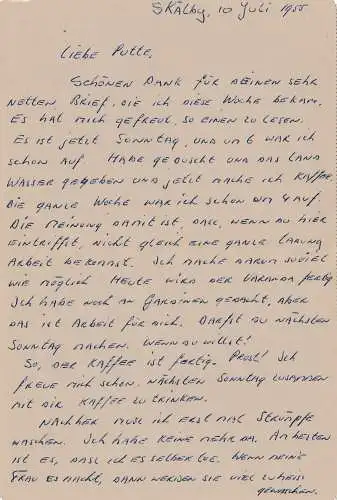 Skälby, 10 Juli 1955
Liebe Putte,
Schönen Dank für deinen sehr
netten Brief, die ich diese Woche bekam.
Es hat mich gefreut, so einen zu lesen.
Es ist jetzt Sonntag, und um 6 war ich
schon auf. Habe geduscht und das Land
Wasser gegeben und jetzt mache ich Kaffee.
Die ganze Woche war ich schon um 4 auf.
Die Meinung damit ist, dass, wenn du hier
eintriffst, nicht gleich eine ganze Ladung
Arbeit bekommst. Ich mache darum soviel
wie möglich. Heute wird der Varanda fertig
Ich habe noch an Gardinen gedacht, aber
das ist Arbeit für dich. Darfst du nächsten
Sonntag machen. Wenn du willst!
So, der Kaffee ist fertig. Prost! Ich
freue mich schon, nächsten Sonntag zusammen
mit dir Kaffee zu trinken.
Nachher muss ich erst mal Strümpfe
waschen. Ich habe keine mehr da. Am besten
ist es, dass ich es selber tue. Wenn meine
Frau es macht, dann werden sie viel zu heiss
gewaschen.